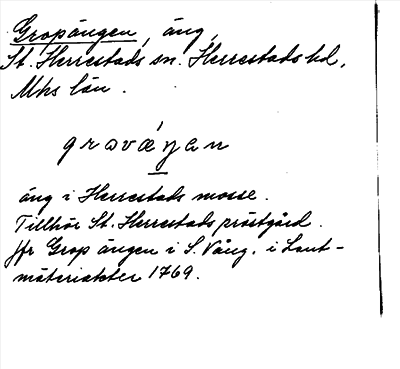 Gropängen, äng,
St. Herrestads sn. Herrestads hd,
Mhs län.
grɔváŋan
äng i Herrestads mosse.
Tillhör St. Herrestads prästgård.
Jfr Grop ängen i S. Vång. i Lant-
mäteriakter 1769.